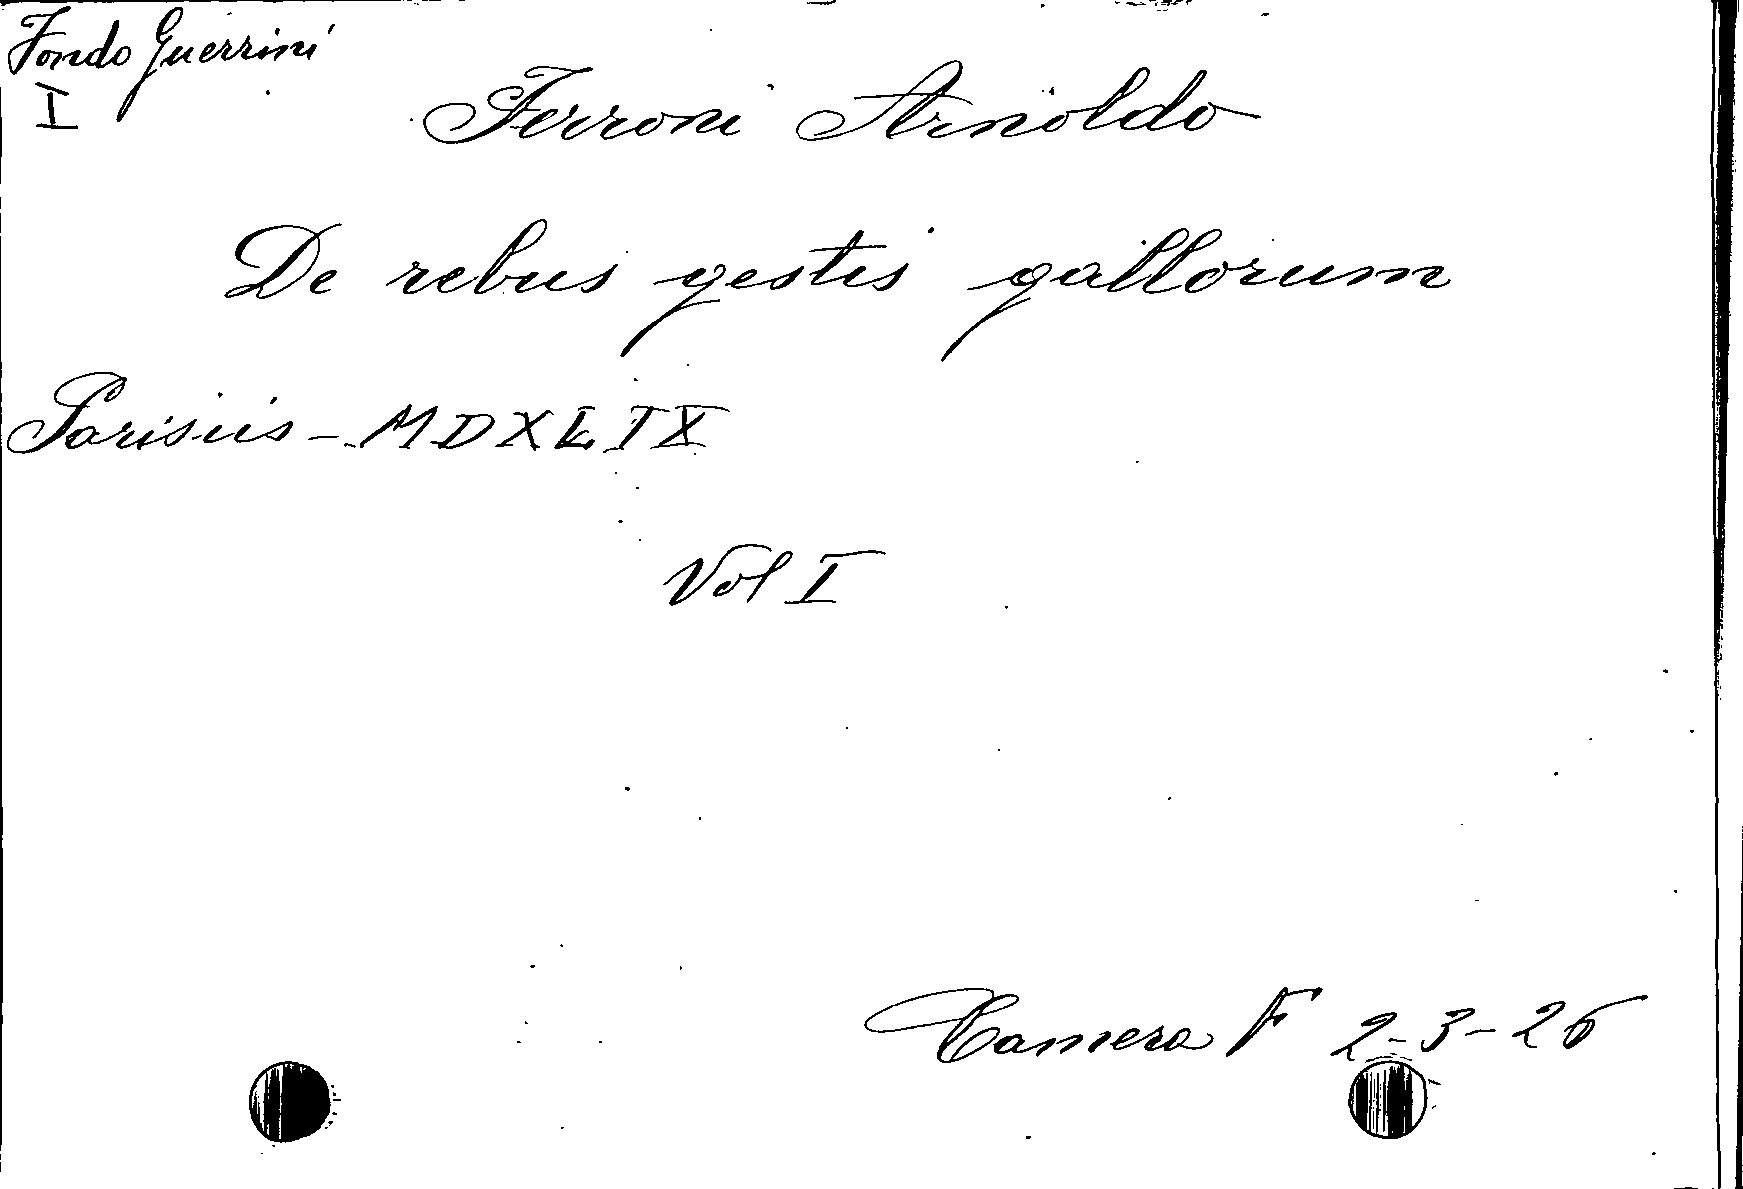 Fondo Guerrini
I
Ferroni Arnoldo
De rebus gestis gallorum
Parisiis - MDXLIX
Vol I
Camera F 2-3-26